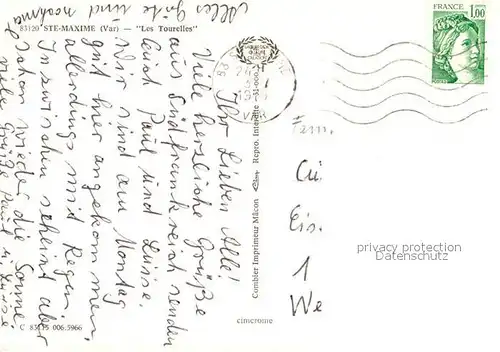 Alles Gute und nochmal
83120 STE-MAXIME (Var) — "Les Tourelles"
Ihr Lieben Alle!
Viele herzliche Grüße
aus Südfrankreich senden
Euch Paul und Luise.
Wir sind am Montag
gut hier angekommen,
allerdings mit Regen.
Inzwischen scheint aber
schon wieder die Sonne
viele Grüße Paul u. Luise
C 83115 006.5966
Combier Imprimeur Mâcon
Repro. Interdite
cimcrome
83
VAR
FRANCE
1,00
POSTES
Fam.
Eis.
1
We
privacy protection
Datenschutz